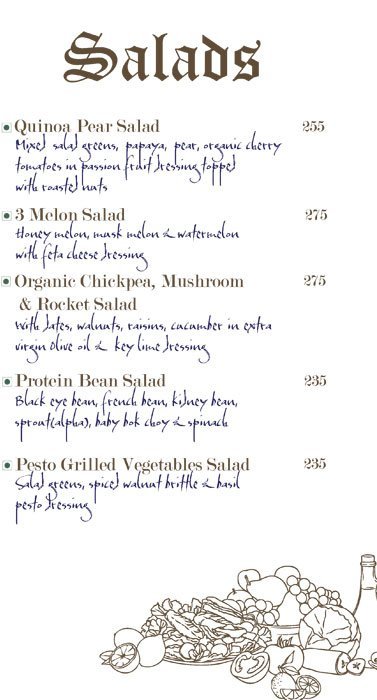 Salads
Quinoa Pear Salad 255
Mixed salad greens, papaya, pear, organic cherry
tomatoes in passion fruit dressing topped
with roasted nuts
3 Melon Salad 275
Honey melon, musk melon & watermelon
with feta cheese dressing
Organic Chickpea, Mushroom 275
& Rocket Salad
With dates, walnuts, raisins, cucumber in extra
virgin Olive oil & key lime dressing
Protein Bean Salad 235
Black eye bean, french bean, kidney bean,
sprout(alpha), baby bok choy & spinach
Pesto Grilled Vegetables Salad 235
Salad greens, spiced walnut brittle & basil
pesto dressing